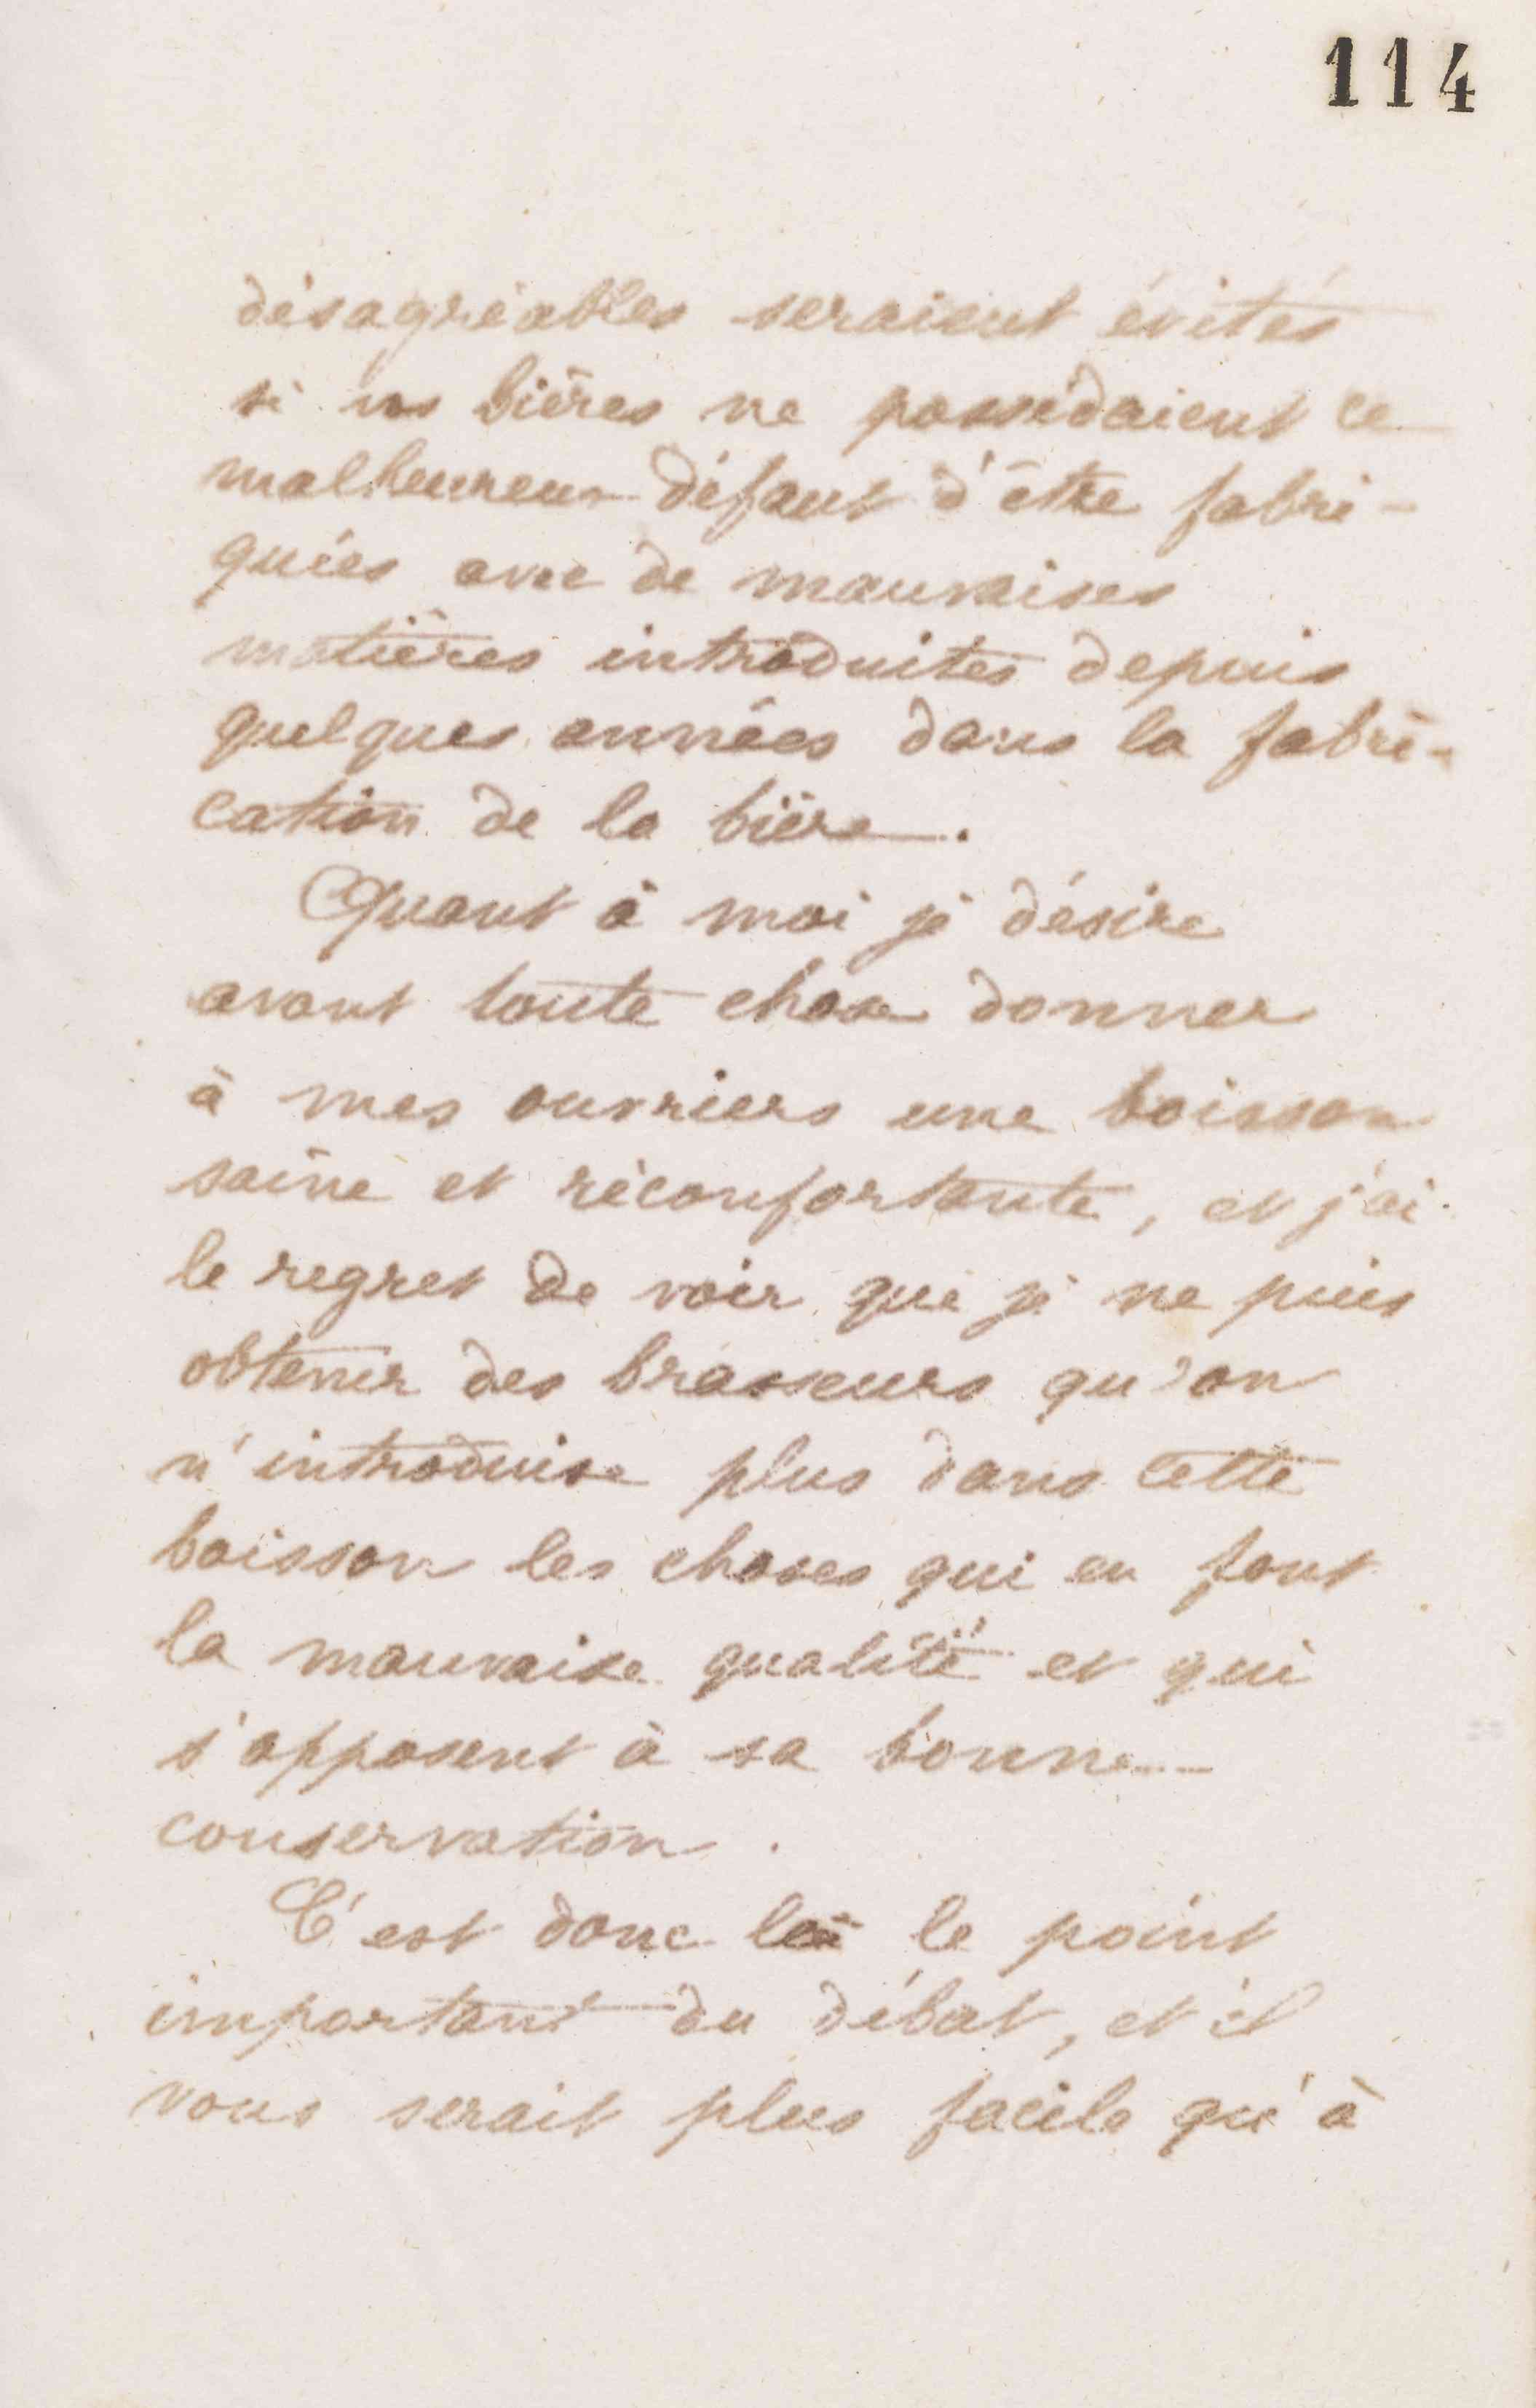 114
désagréables seraient évités
si vos bières ne possédaient ce
malheureux défaut d'être fabri-
quées avec de mauvaises
matières introduites depuis
quelques années dans la fabri-
cation de la bière.
Quant à moi je désire
avant toute chose donner
à mes ouvriers une boisson
saine et réconfortante, et j'ai
le regret de voir que je ne puis
obtenir des brasseurs qu'on
n'introduise plus dans cette
boisson les choses qui en font
la mauvaise qualité et qui
s'opposent à sa bonne
conservation.
C'est donc là le point
important du débat, et il
vous serait plus facile qu'à